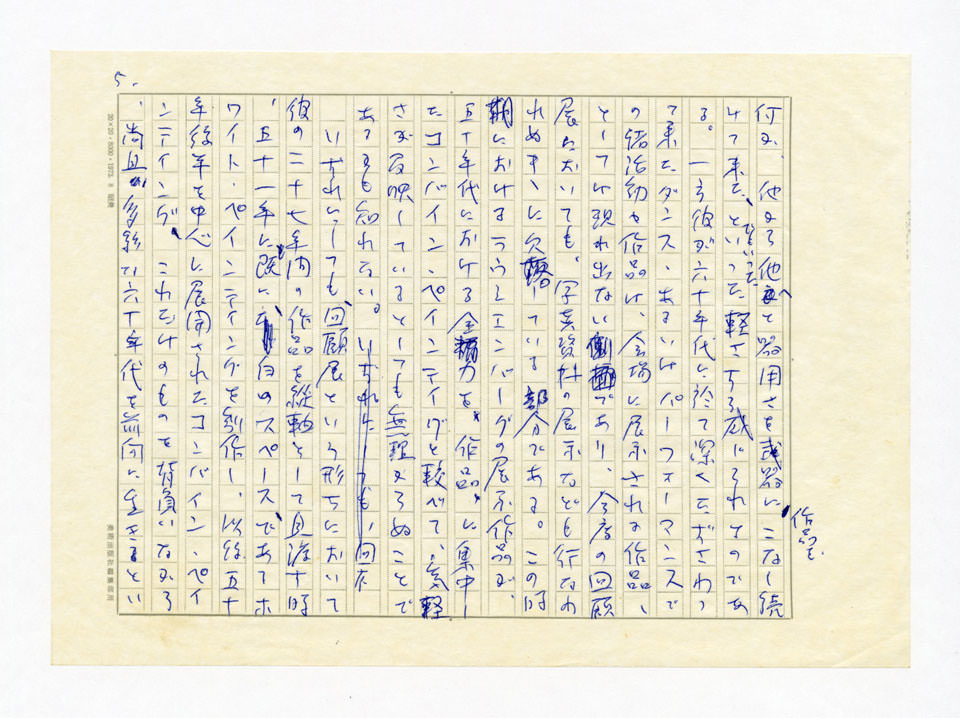 5.
何か、他から他へと器用さを武器に作品をこなし続
けて来た、といった軽さすら感じられるのであ
る。一方彼が六十年代に於て深くたずさわっ
て来たダンス、あるいはパーフォーマンスで
の諸活動や作品は、会場に展示される作品、
としては現れ出ない側面であり、今度の回顧
展においても、写真資料の展示なども行なわ
れぬままに欠落している部分である。この時
期におけるラウシェンバーグの展示作品が、
五十年代における全精力を、作品、に集中し
たコンバイン・ペインティングと較べて、気軽
さが反映しているとしても無理からぬことで
あるかも知れない。いずれにしても、回在
いずれにしても、回顧展という形ちにおいて
彼の二十七年間の作品を縦軸として且浮す時
、五十一年に既に、白のスペースであるホ
ワイト・ペインティングを制作し、以後五十
年後年を中心に展開されたコンバイン・ペイ
ンティング、これだけのものを背負いながら
、尚且多彩な六十年代を前向に生きるとい
20×20